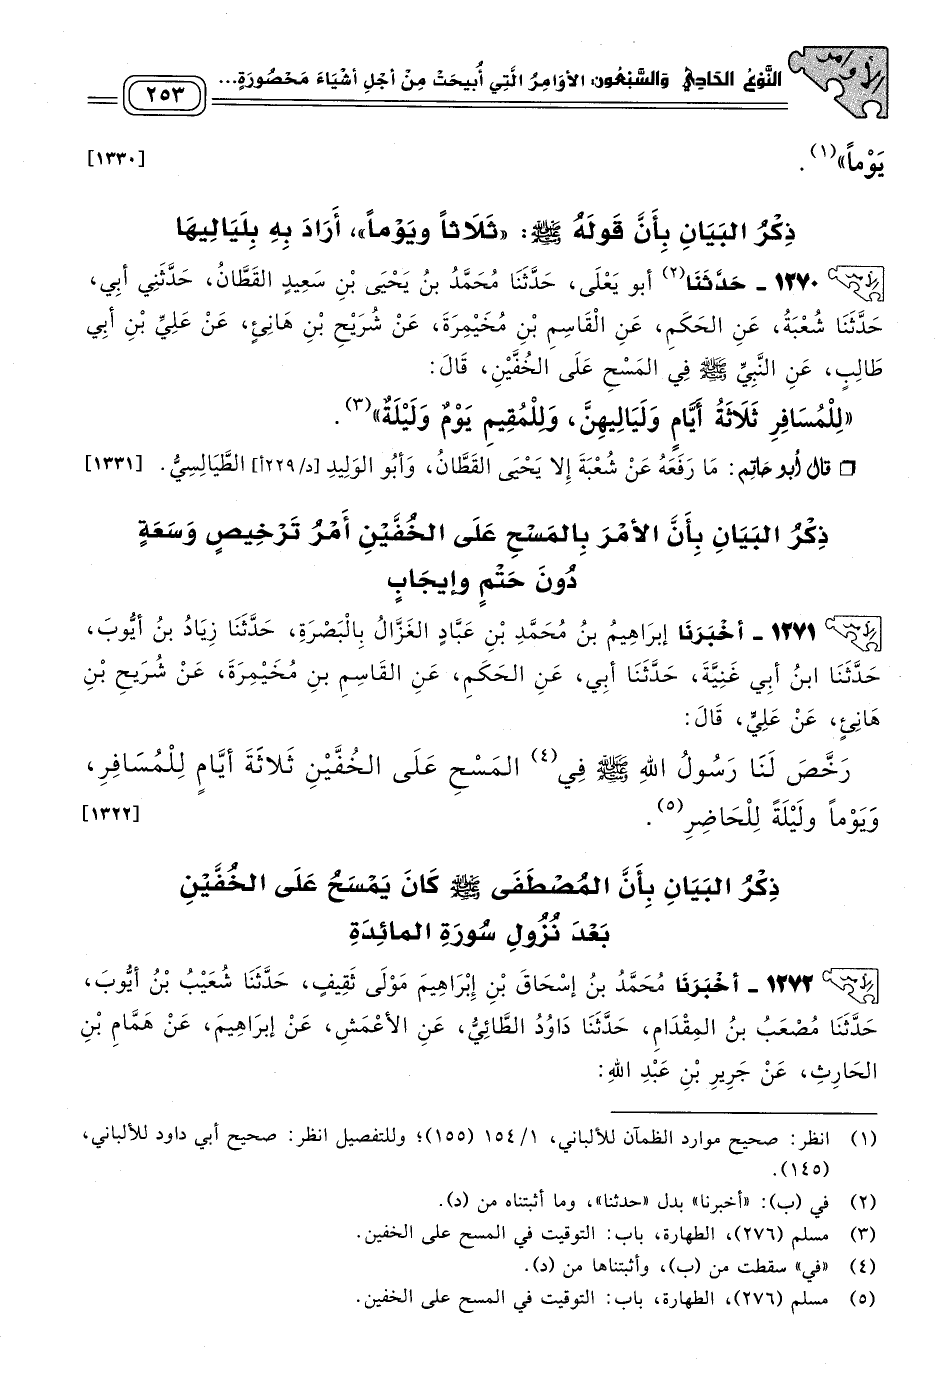 الأوامر
النَّوْعُ الحَادِي وَالسَّبْعُون: الأَوَامِرُ الَّتِي أُبِيحَتْ مِنْ أَجْلِ أَشْيَاءَ مَحْصُورَةٍ...
٢٥٣
يَوْماً»(١). [١٣٣٠]
ذِكْرُ البَيَانِ بِأَنَّ قَوْلَهُ ﷺ: «ثَلَاثاً ويَوْماً»، أَرَادَ بِهِ بِلَيَالِيهَا
١٢٧٠ ـ حَدَّثَنَا(٢) أبو يَعْلَى، حَدَّثَنَا مُحَمَّدُ بنُ يَحْيَى بْنِ سَعِيدٍ القَطَّانُ، حَدَّثَنِي أبِي،
حَدَّثَنَا شُعْبَةُ، عَنِ الحَكَمِ، عَنِ الْقَاسِمِ بْنِ مُخَيْمِرَةَ، عَنْ شُرَيْحِ بْنِ هَانِئٍ، عَنْ عَلِيِّ بْنِ أبِي
طَالِبٍ، عَنِ النَّبِيِّ ﷺ فِي المَسْحِ عَلَى الْخُفَّيْنِ، قَالَ:
«لِلْمُسَافِرِ ثَلَاثَةُ أَيَّامٍ وَلَيَالِيهِنَّ، وَلِلْمُقِيمِ يَوْمٌ وَلَيْلَةٌ»(٣).
❒ قال أبو حاتِم: مَا رَفَعَهُ عَنْ شُعْبَةَ إلا يَحْيَى القَطَّانُ، وَأبُو الوَلِيدِ [د/٢٢٩أ] الطَّيَالِسِيُّ. [١٣٣١]
ذِكْرُ البَيَانِ بِأَنَّ الأَمْرَ بِالمَسْحِ عَلَى الخُفَّيْنِ أَمْرُ تَرْخِيصٍ وَسَعَةٍ
دُونَ حَتْمٍ وإيجَابٍ
١٢٧١ ـ أَخْبَرَنَا إبرَاهِيمُ بنُ مُحَمَّدِ بْنِ عَبَّادٍ الغَزَّالُ بِالْبَصْرَةِ، حَدَّثَنَا زِيَادُ بنُ أيُّوبَ،
حَدَّثَنَا ابنُ أبي غَنِيَّةَ، حَدَّثَنَا أبي، عَنِ الحَكَمِ، عَنِ القَاسِمِ بنِ مُخَيْمِرَةَ، عَنْ شُرَيحِ بْنِ
هَانِئٍ، عَنْ عَلِيٍّ، قَالَ:
رَخَّصَ لَنَا رَسُولُ اللهِ ﷺ فِي(٤) المَسْحِ عَلَى الخُفَّيْنِ ثَلاثَةَ أيَّامٍ لِلْمُسَافِرِ،
وَيَوْماً ولَيْلَةً لِلْحَاضِرِ(٥). [١٣٢٢]
ذِكْرُ البَيَانِ بِأَنَّ المُصْطَفَى ﷺ كَانَ يَمْسَحُ عَلَى الخُفَّيْنِ
بَعْدَ نُزُولِ سُورَةِ المائِدَةِ
١٢٧٢ ـ أَخْبَرَنَا مُحَمَّدُ بنُ إسْحَاقَ بْنِ إبْرَاهِيمَ مَوْلَى ثَقِيفٍ، حَدَّثَنَا شُعَيْبُ بْنُ أيُّوبَ،
حَدَّثَنَا مُصْعَبُ بنُ المِقْدَامِ، حَدَّثَنَا دَاوُدُ الطَّائِيُّ، عَنِ الأعْمَشِ، عَنْ إبرَاهِيمَ، عَنْ هَمَّامِ بْنِ
الحَارِثِ، عَنْ جَرِيرِ بْنِ عَبْدِ اللهِ:
(١) انظر: صحيح موارد الظمآن للألباني، ١/ ١٥٤ (١٥٥)؛ وللتفصيل انظر: صحيح أبي داود للألباني،
(١٤٥).
(٢) في (ب): «أخبرنا» بدل «حدثنا»، وما أثبتناه من (د).
(٣) مسلم (٢٧٦)، الطهارة، باب: التوقيت في المسح على الخفين.
(٤) «في» سقطت من (ب)، وأثبتناها من (د).
(٥) مسلم (٢٧٦)، الطهارة، باب: التوقيت في المسح على الخفين.